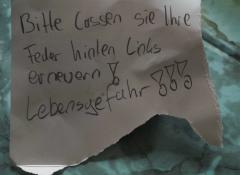 Bitte Lassen sie Ihre
Feder hinten Links
erneuern!
Lebensgefahr!!!